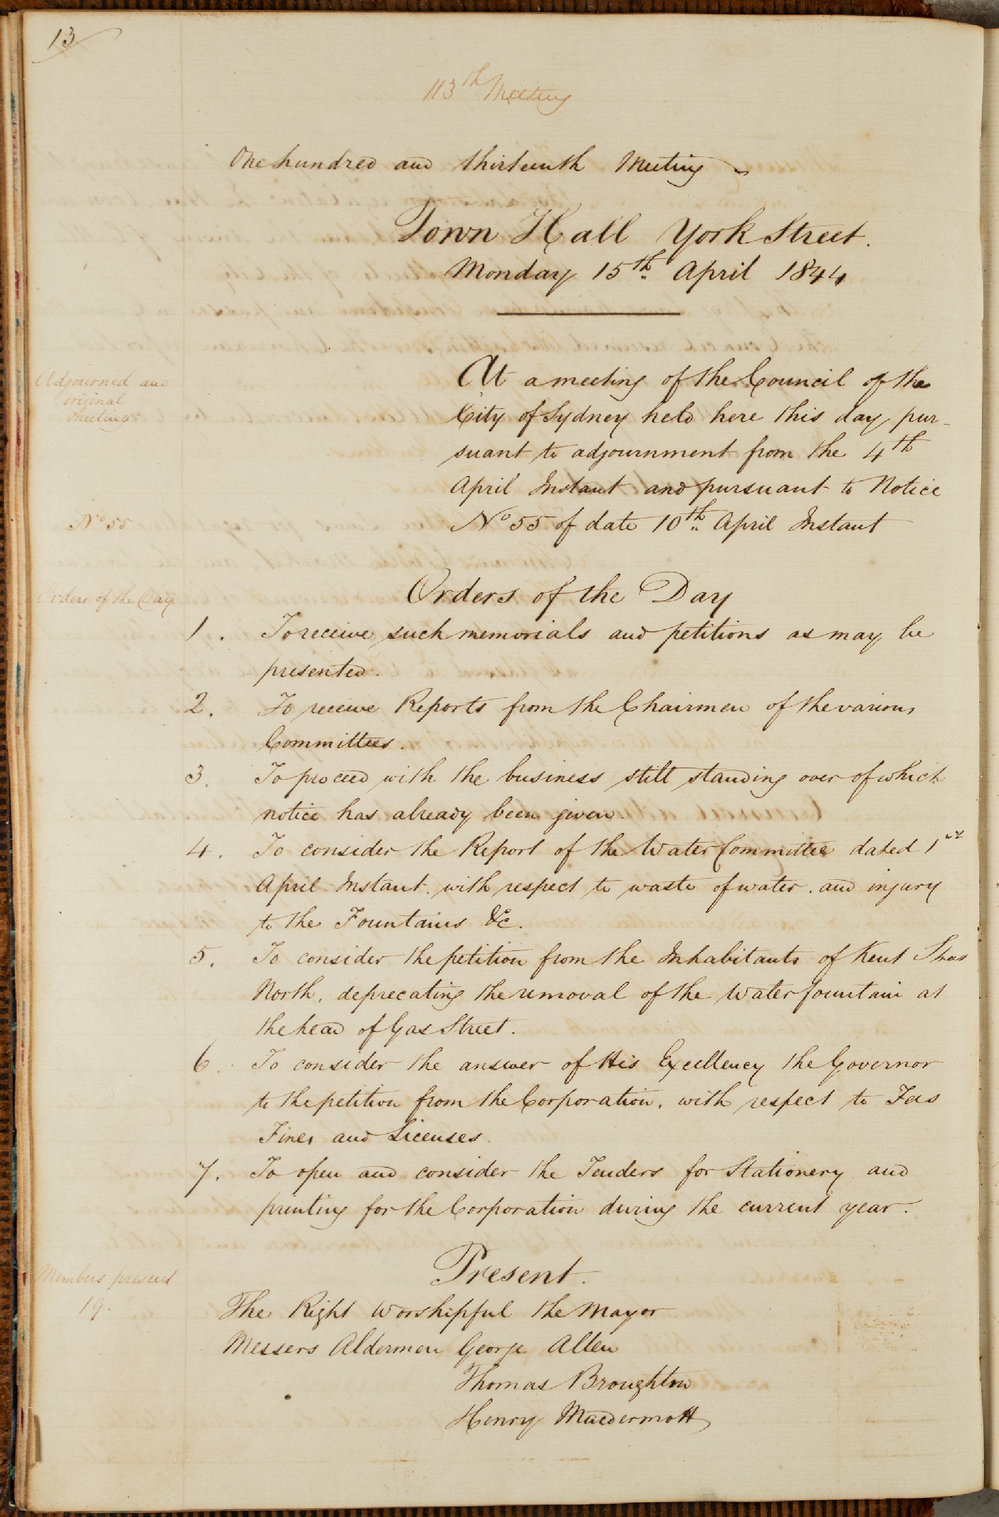 13
113th Meeting
One hundred and thirteenth Meeting
Town Hall York Street.
Monday 15th April 1844
Adjourned and
original
Meetings
At a meeting of the Council of the
City of Sydney held here this day, pur-
suant to adjournment from the 4th
April Instant and pursuant to Notice
No 55
No 55 of date 10th April Instant
Orders of the Day
Orders of the Day
1. To receive such memorials and petitions as may be
presented.
2. To receive Reports from the Chairmen of the various
Committees.
3. To proceed with the business still standing over of which
notice has already been given.
4. To consider the Report of the Water Committee dated 1st
April Instant. with respect to waste of water. and injury
to the Fountains &c.
5. To consider the petition from the Inhabitants of Kent
North, deprecating the removal of the Water fountain at
the head of Gas Street.
6. To consider the answer of His Excellency the Governor
to the petition from the Corporation. with respect to Fees
Fines and Licenses.
7. To open and consider the Tenders for Stationery and
printing for the Corporation during the current year.
Members present
19.
Present.
The Right Worshipful the Mayor
Messers Aldermen George Allen
Thomas Broughton
Henry Macdermott